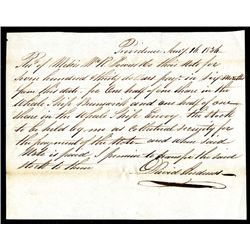 Providence Aug. 16. 1836.
Recd of Messrs Wm R. Bowers &c this note for
seven hundred & thirty dollars pay. in six months
from this date. for One half of one share in the
Whale Ship Brunswick and one half of one
share in the Whale Ship Envoy. the stock
to be held by me as collateral security for
the payment of the note. and when said
Note is paid, I promise to transfer the said
stock to them
David Andrews